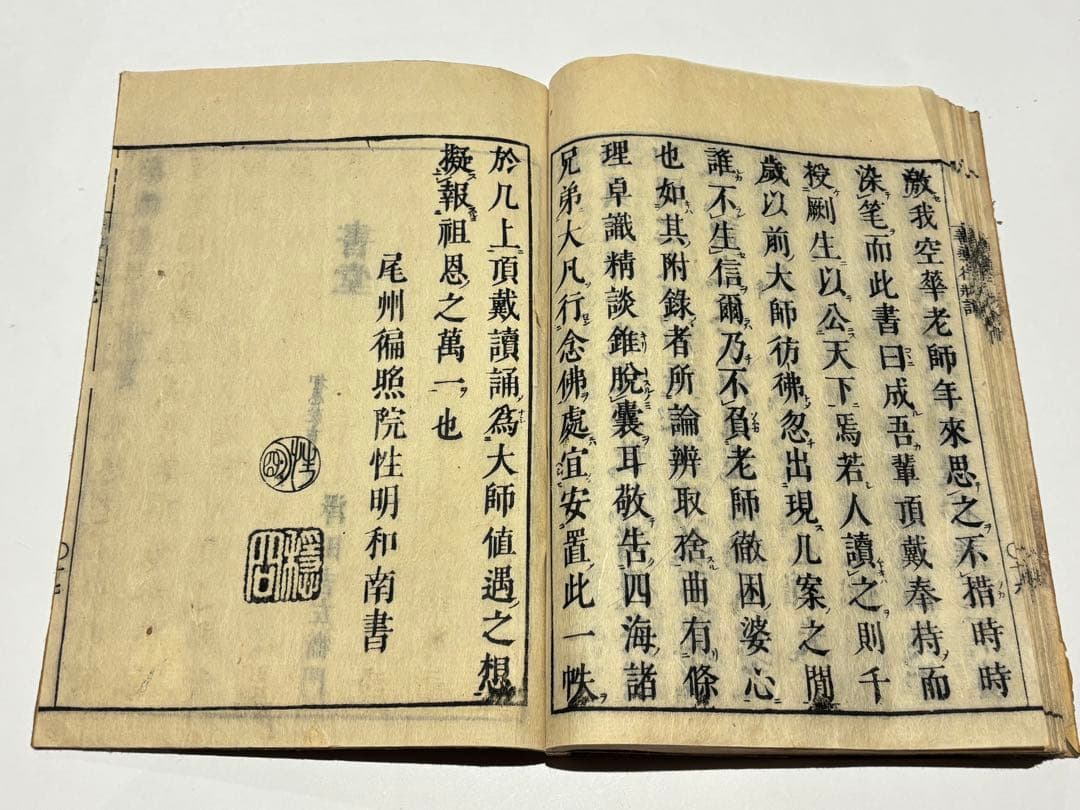 激我空華老師年來思之不措時時
染笔而此書曰成吾輩頂戴奉持而
授劂生以公天下焉若人讀之則千
歲以前大師彷彿忽出現几案之間
誰不生信爾乃不負老師徹困婆心
也如其附錄者所論辨取捨曲有條
理卓識精談錐脫囊耳敬告四海諸
兄弟大凡行念佛處宜安置此一帙
於几上頂戴讀誦爲大師値遇之想
擬報祖恩之萬一也
尾州徧照院性明和南書
性明